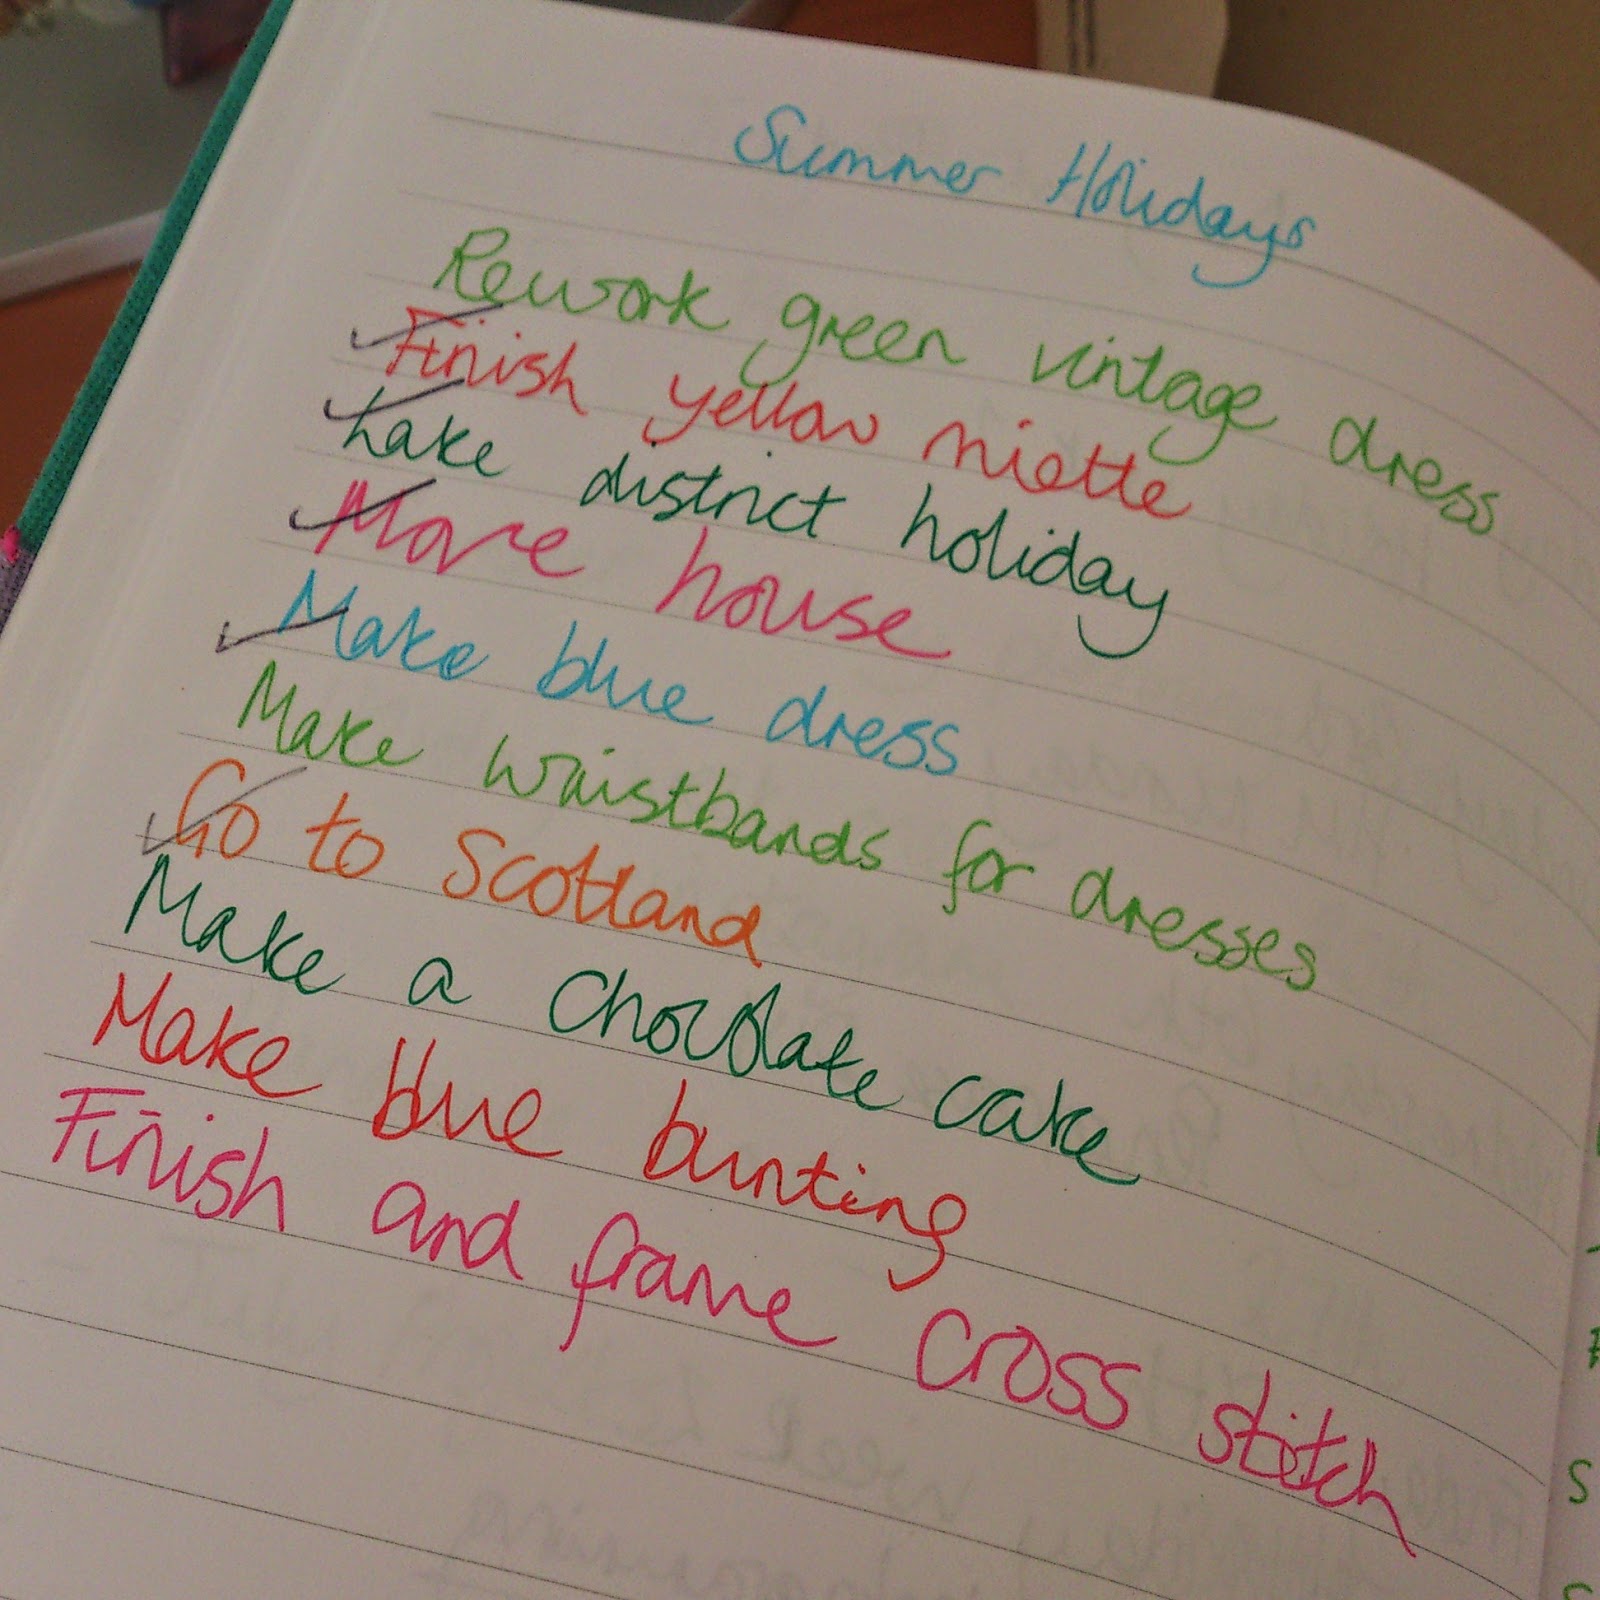 Summer Holidays
Rework green vintage dress
Finish yellow miette
Lake district holiday
Move house
Make blue dress
Make waistbands for dresses
Go to Scotland
Make a chocolate cake
Make blue bunting
Finish and frame cross stitch